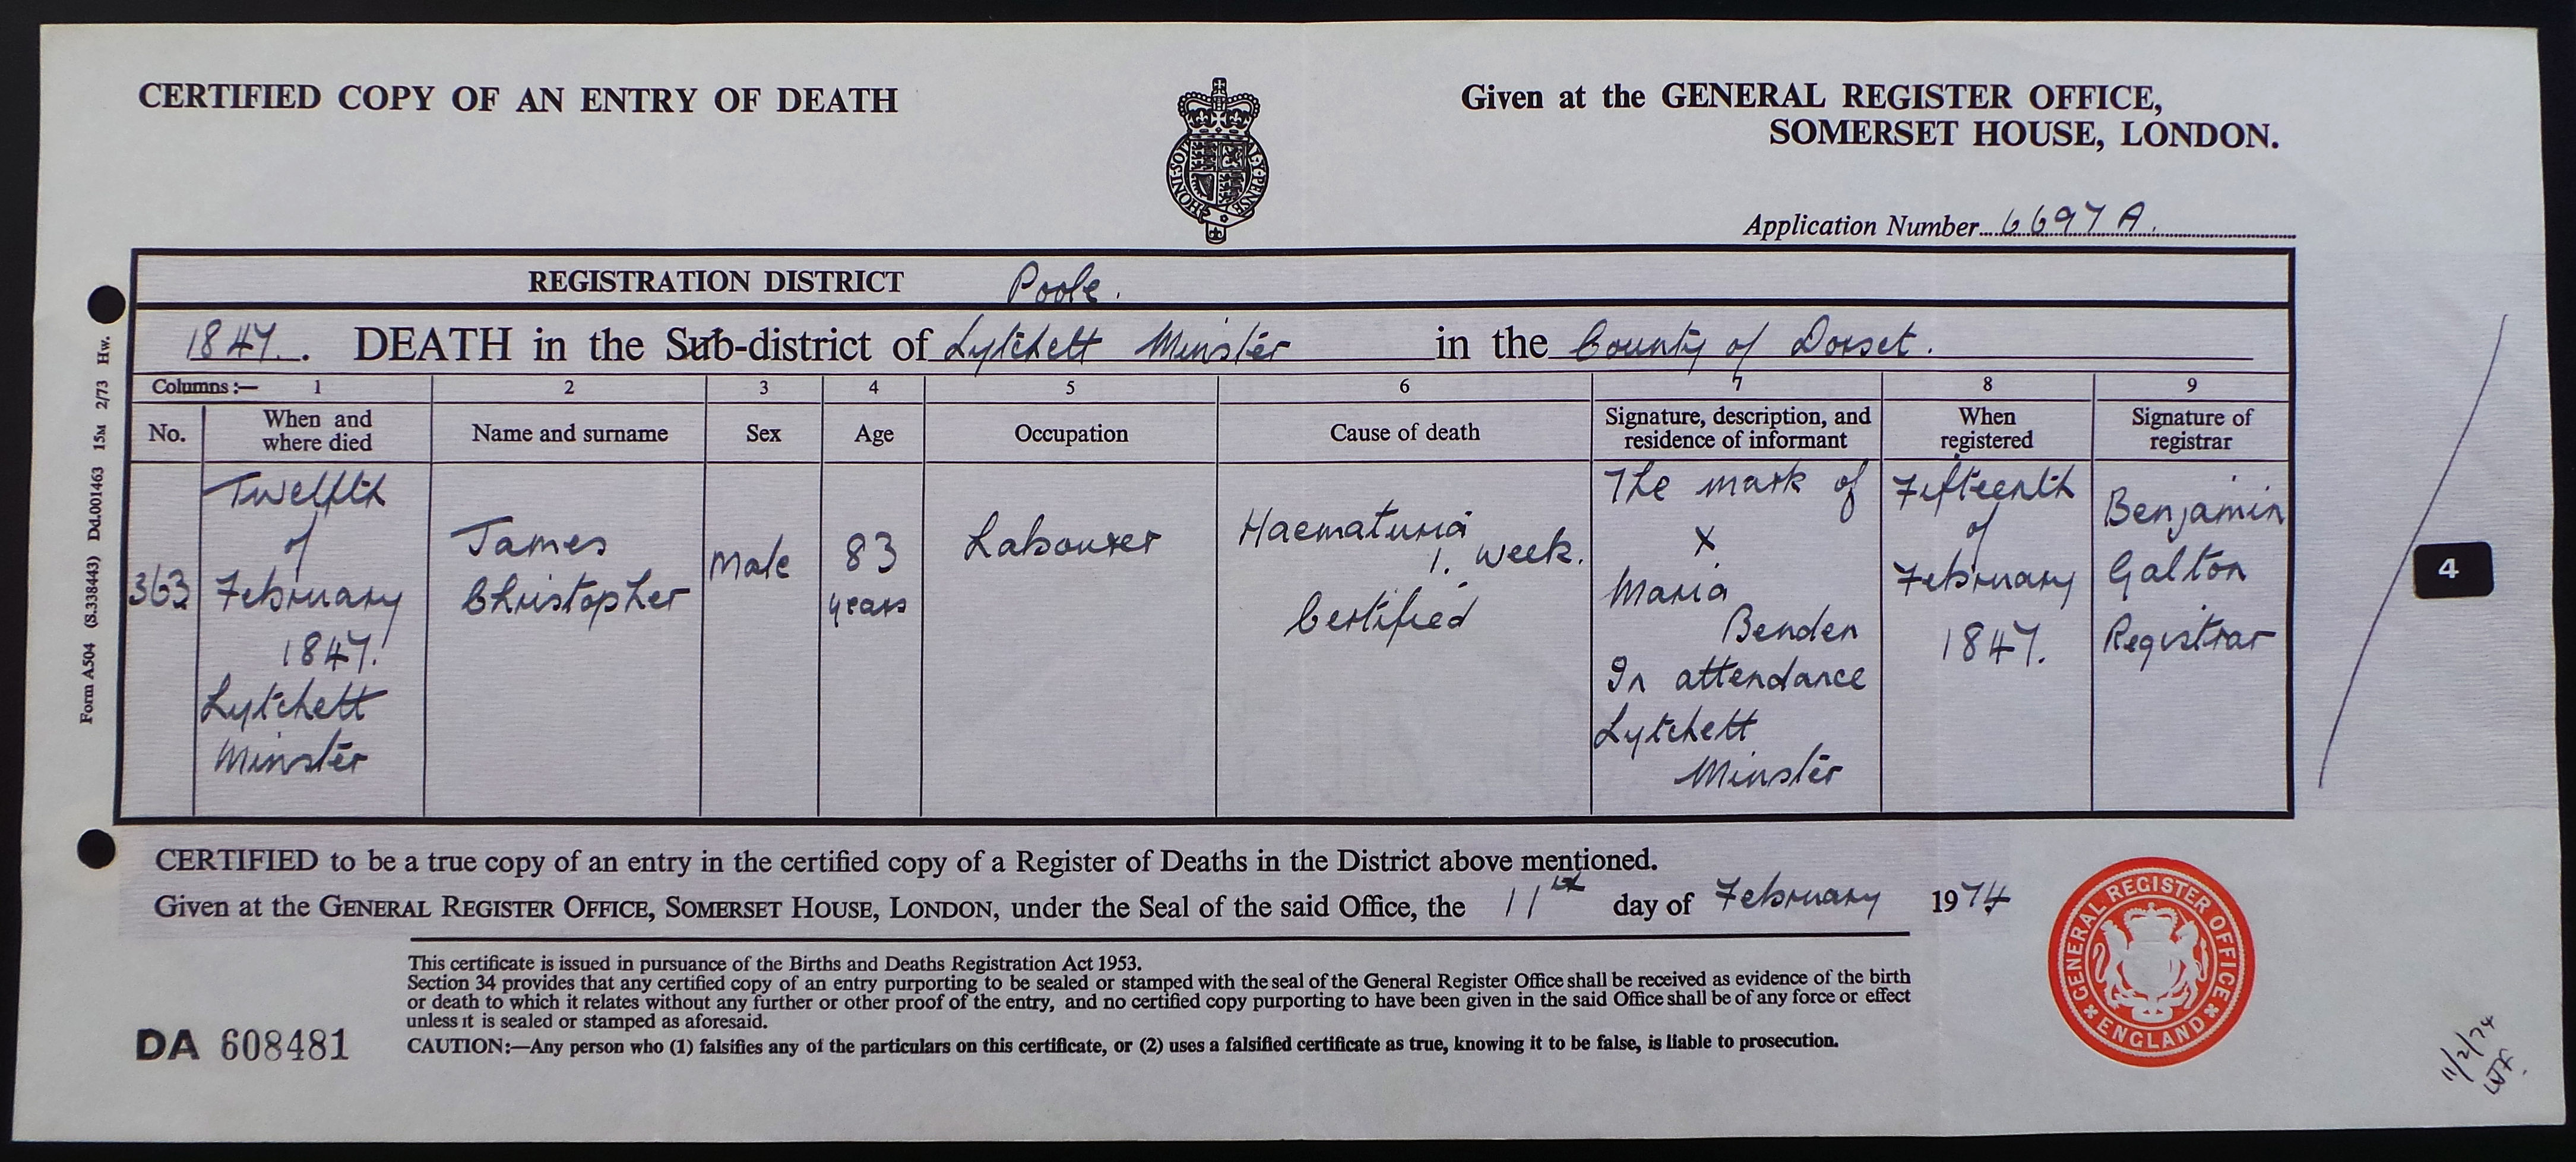 CERTIFIED COPY OF AN ENTRY OF DEATH
Given at the GENERAL REGISTER OFFICE,
SOMERSET HOUSE, LONDON.
HONI·SOIT
Y·PENSE
Application Number 6697 A.
REGISTRATION DISTRICT Poole.
1847. DEATH in the Sub-district of Lytchett Minster in the County of Dorset.
Columns:— 1 2 3 4 5 6 7 8 9
No.
When and
where died
Name and surname
Sex
Age
Occupation
Cause of death
Signature, description, and
residence of informant
When
registered
Signature of
registrar
363
Twelfth
of
February
1847.
Lytchett
Minster
James
Christopher
Male
83
years
Labourer
Haematuria
1. week.
Certified
The mark of
X
Maria
Benden
In attendance
Lytchett
Minster
Fifteenth
of
February
1847.
Benjamin
Galton
Registrar
4
Form A504 (S.338443) Dd.001463 15M 2/73 Hw.
CERTIFIED to be a true copy of an entry in the certified copy of a Register of Deaths in the District above mentioned.
Given at the GENERAL REGISTER OFFICE, SOMERSET HOUSE, LONDON, under the Seal of the said Office, the 11th day of February 1974
This certificate is issued in pursuance of the Births and Deaths Registration Act 1953.
Section 34 provides that any certified copy of an entry purporting to be sealed or stamped with the seal of the General Register Office shall be received as evidence of the birth
or death to which it relates without any further or other proof of the entry, and no certified copy purporting to have been given in the said Office shall be of any force or effect
unless it is sealed or stamped as aforesaid.
DA 608481
CAUTION:—Any person who (1) falsifies any of the particulars on this certificate, or (2) uses a falsified certificate as true, knowing it to be false, is liable to prosecution.
GENERAL REGISTER OFFICE
ENGLAND
11/2/74